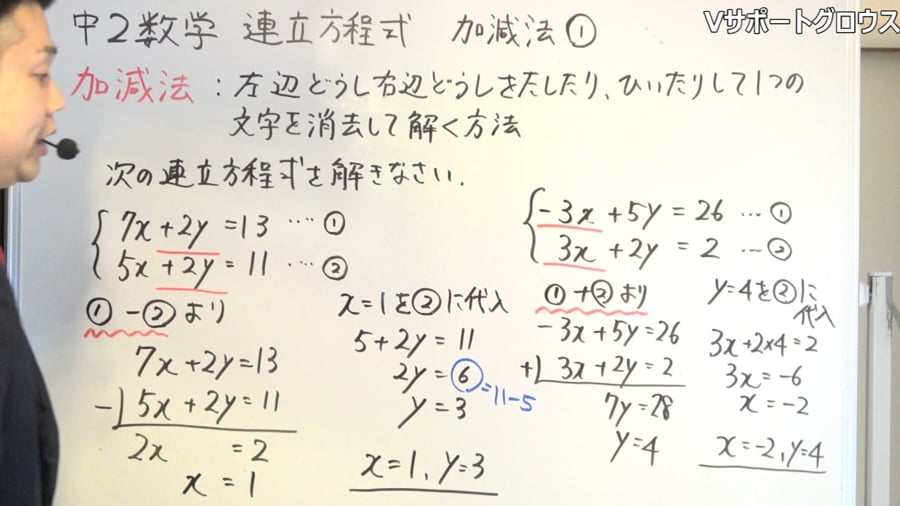 Vサポートグロウス
中2数学 連立方程式 加減法①
加減法:左辺どうし右辺どうしをたしたり、ひいたりして1つの
文字を消去して解く方法
次の連立方程式を解きなさい.
7x+2y=13 …… ①
5x+2y=11 …… ②
①-②より
7x+2y=13
-) 5x+2y=11
2x =2
x=1
x=1を②に代入
5+2y=11
2y=6 =11-5
y=3
x=1, y=3
-3x+5y=26 … ①
3x+2y=2 … ②
①+②より
-3x+5y=26
+) 3x+2y=2
7y=28
y=4
y=4を②に
代入
3x+2×4=2
3x=-6
x=-2
x=-2, y=4